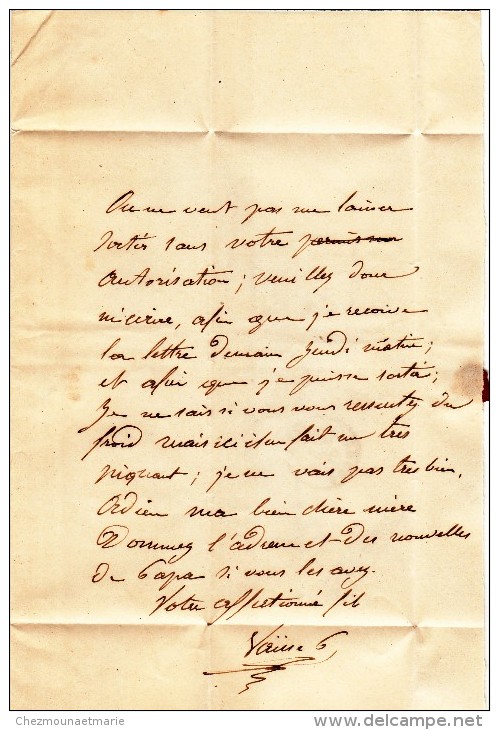 On ne veut pas me laisser
sortir sans votre permission
autorisation; veuillez donc
m'ecrire, afin que je reçoive
la lettre demain Jeudi matin;
et afin que je puisse sortir;
Je ne sais si vous vous ressentez du
froid mais ici il en fait un tres
piquant; je ne vais pas tres bien.
Adieu ma bien chère mère
Donnez l'adresse et des nouvelles
de Papa si vous les avez.
Votre affectionné fils
Chezmounaetmarie
http://www.delcampe.net